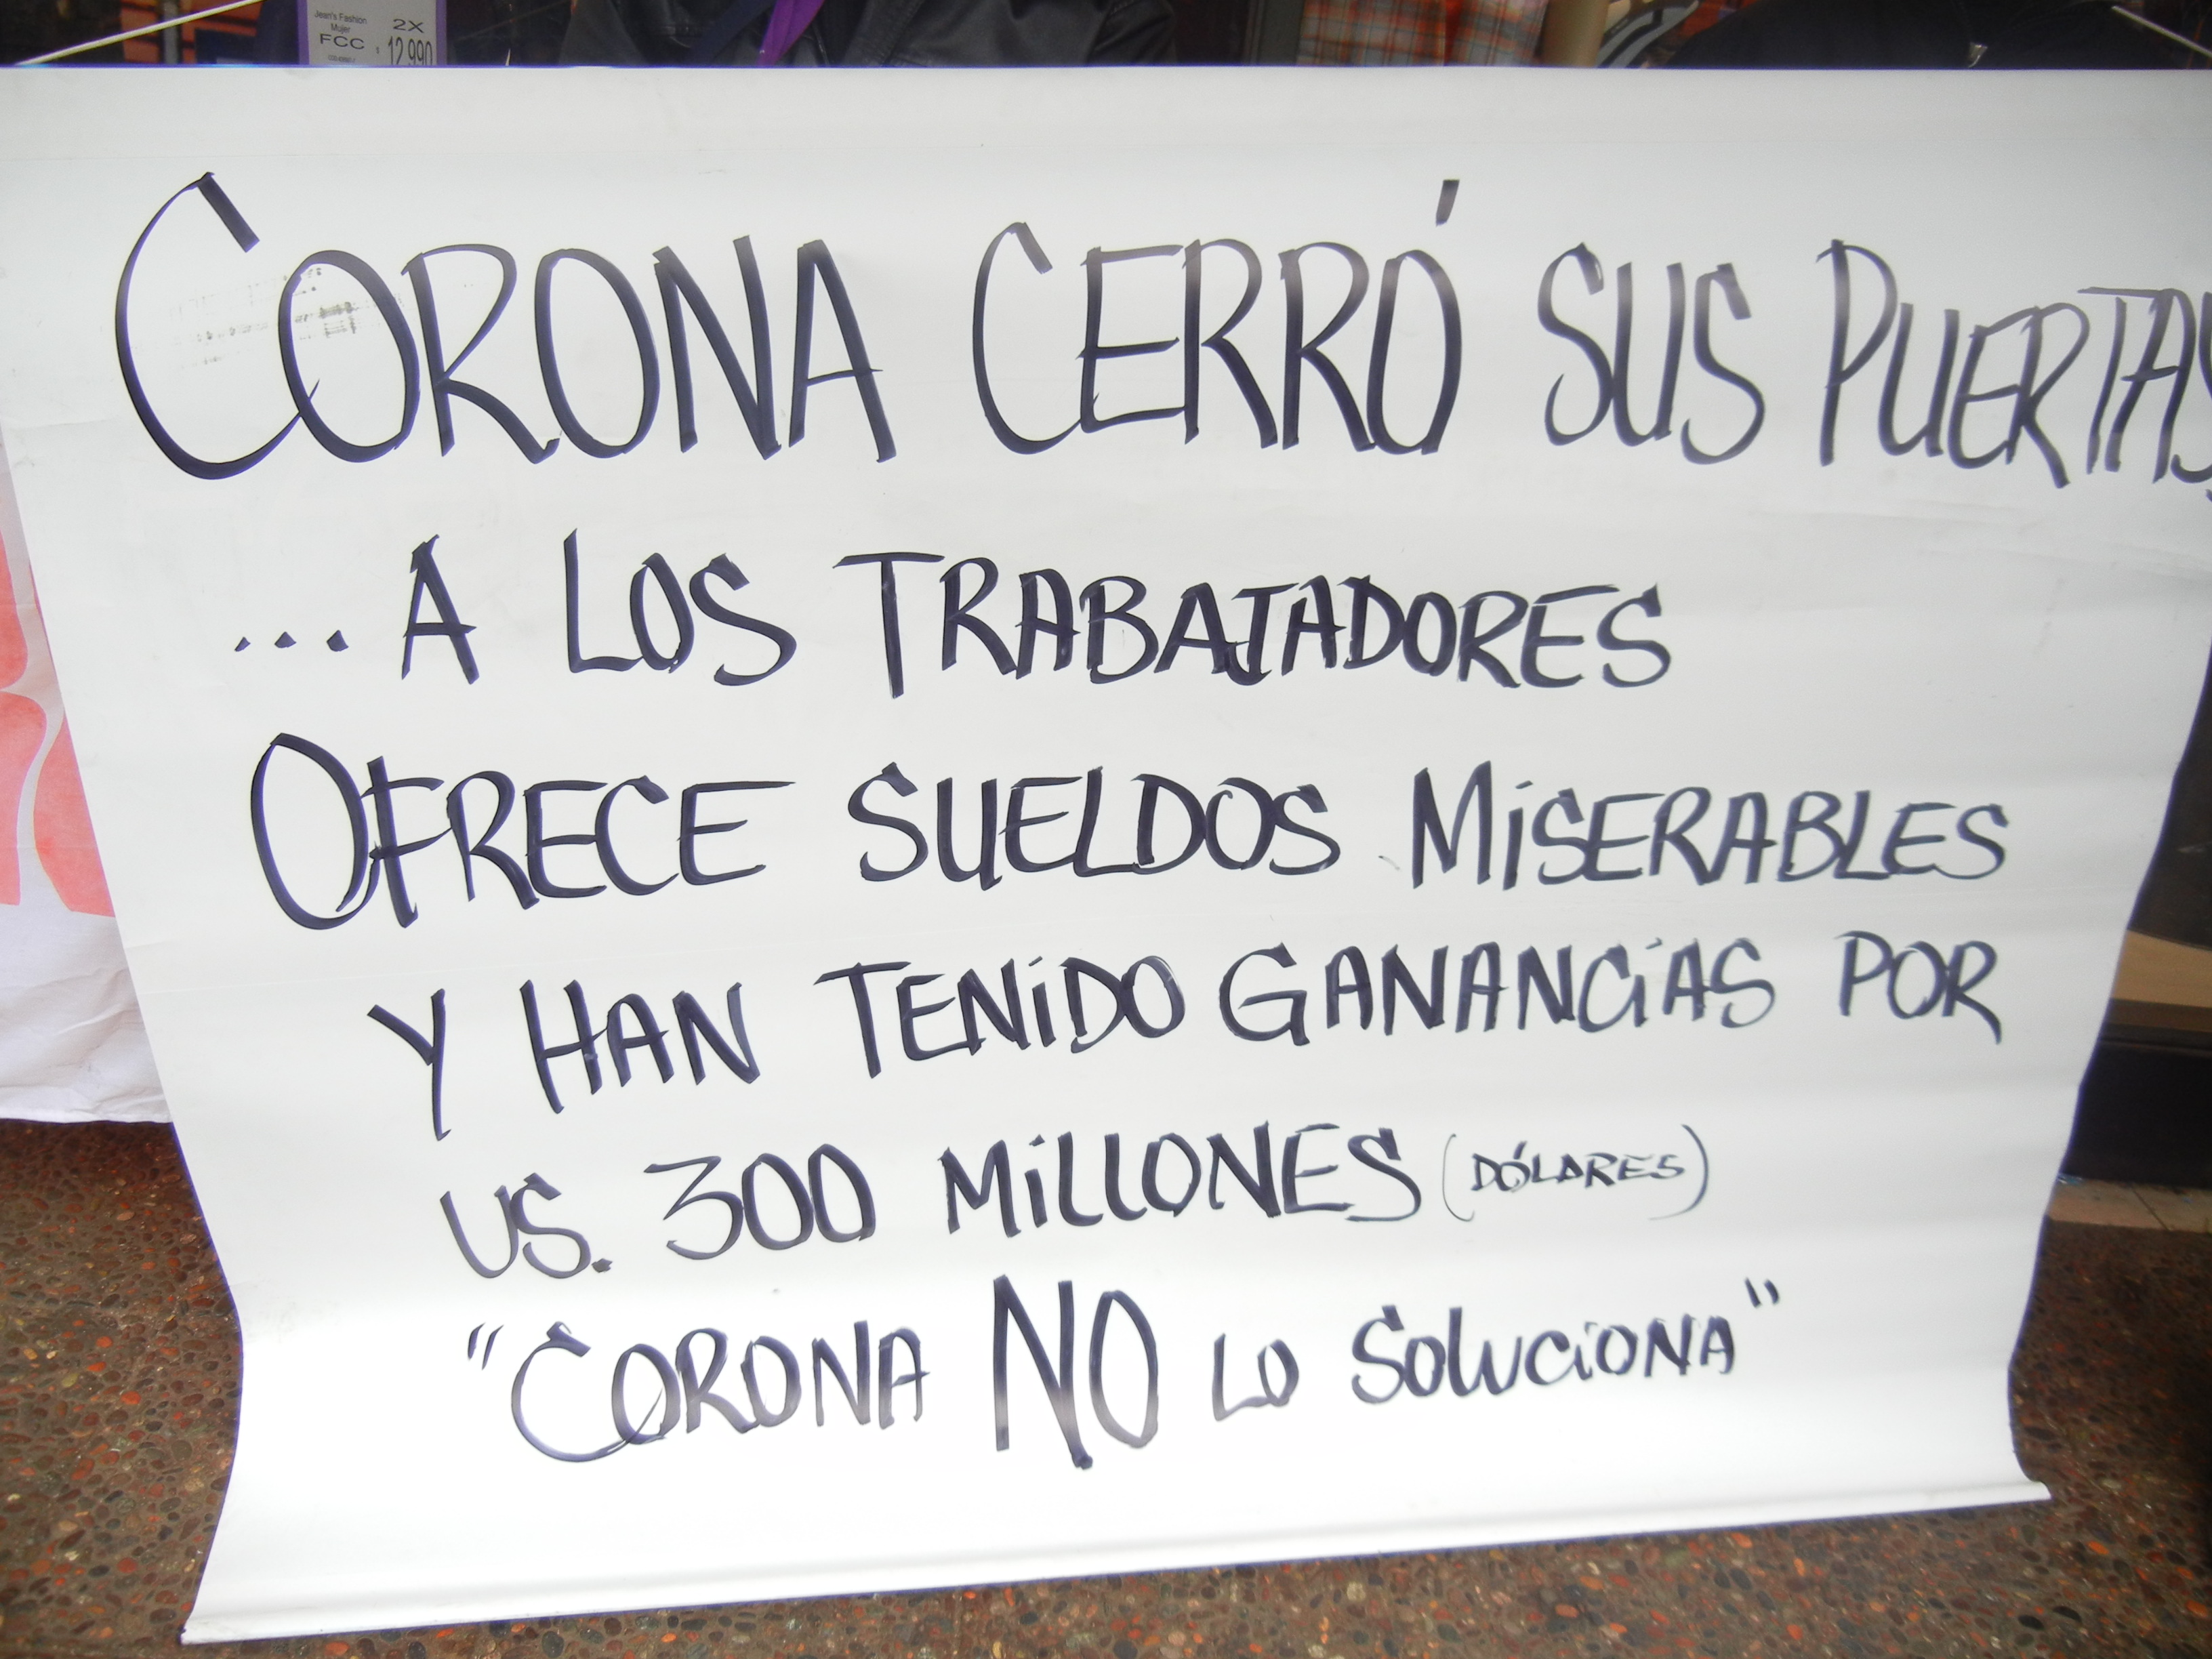 Jean's Fashion
Mujer
FCC
2X
$ 12.990
CORONA CERRÓ SUS PUERTAS
... A LOS TRABAJADORES
OFRECE SUELDOS MISERABLES
Y HAN TENIDO GANANCIAS POR
US. 300 MILLONES (DÓLARES)
"CORONA NO LO SOLUCIONA"